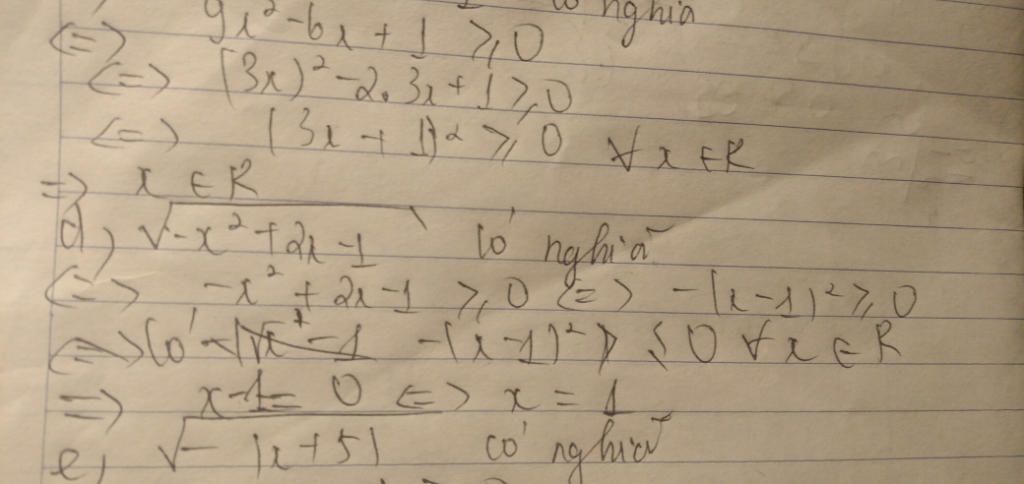 có nghĩa
<=> 9x² - 6x + 1 ≥ 0
<=> (3x)² - 2.3x + 1 ≥ 0
<=> (3x - 1)² ≥ 0 ∀ x ∈ R
=> x ∈ R
d, √-x² + 2x - 1 có nghĩa
<=> -x² + 2x - 1 ≥ 0 <=> -(x - 1)² ≥ 0
Có -(x - 1)² ≤ 0 ∀ x ∈ R
=> x - 1 = 0 <=> x = 1
e, √- |x + 5| có nghĩa